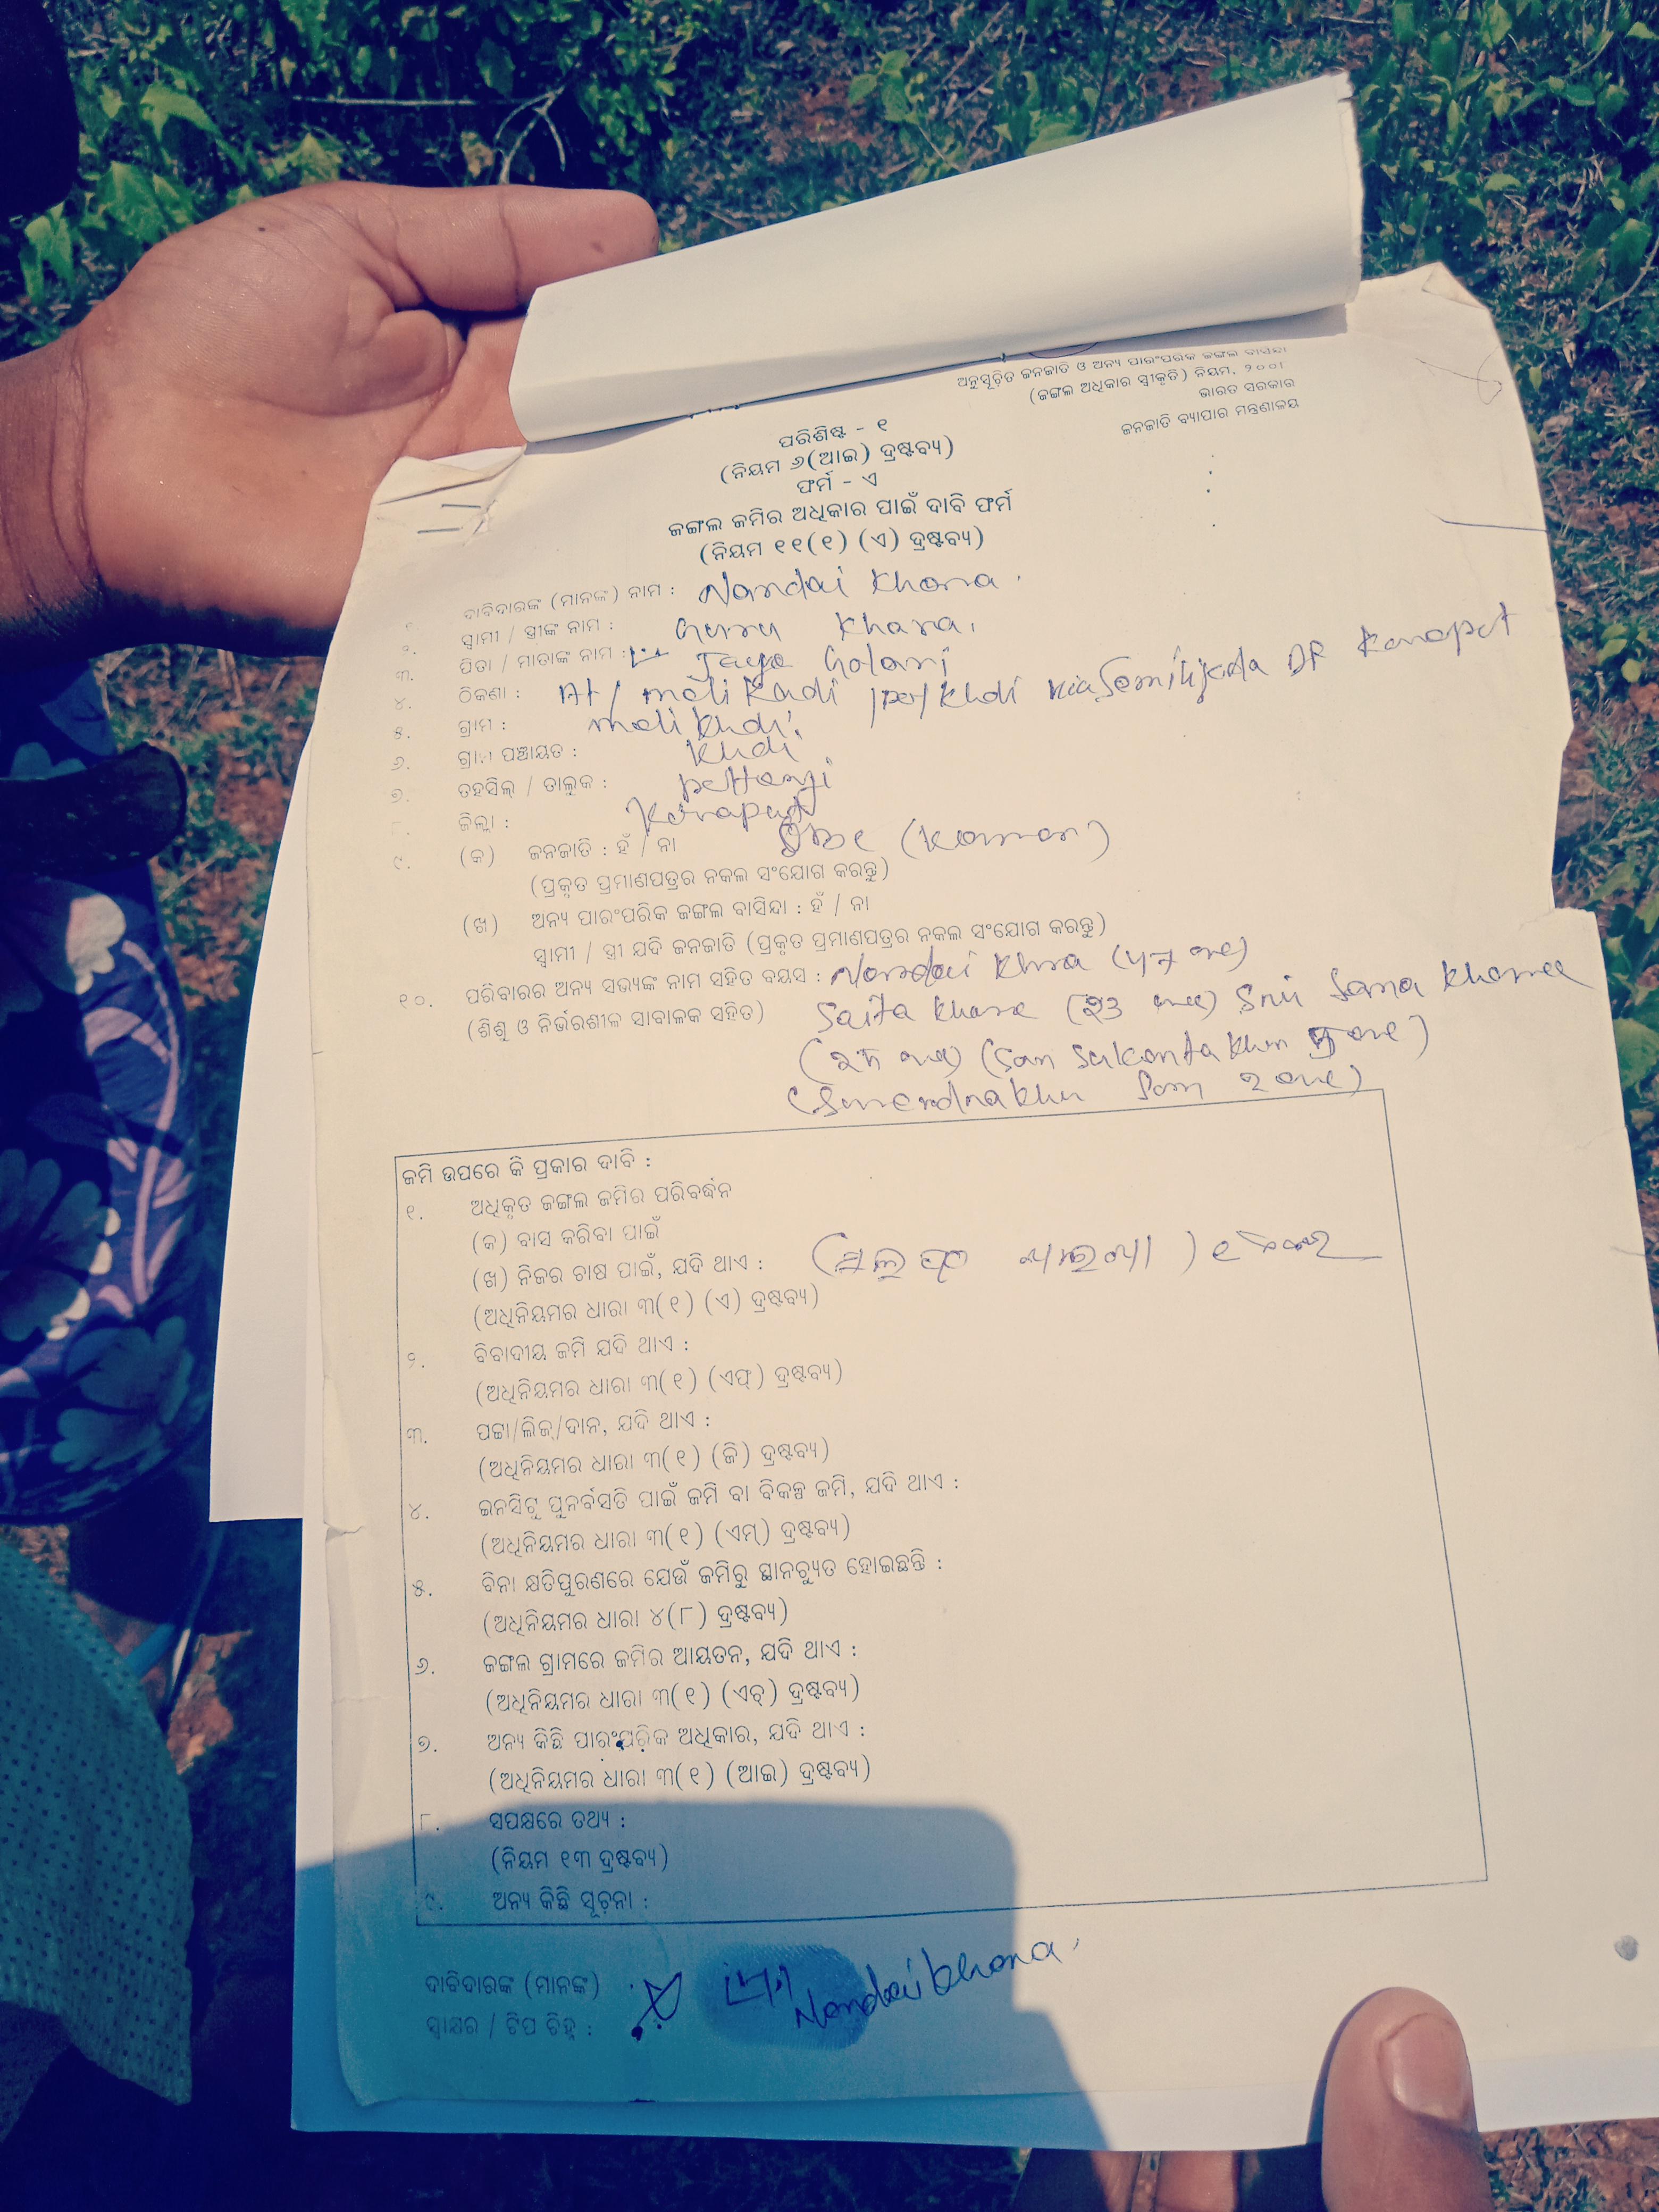 ଅନୁସୂଚିତ ଜନଜାତି ଓ ଅନ୍ୟ ପାରଂପରିକ ଜଙ୍ଗଲ ବାସିନ୍ଦା
(ଜଙ୍ଗଲ ଅଧିକାର ସ୍ୱୀକୃତି) ନିୟମ, ୨୦୦୮
ଭାରତ ସରକାର
ଜନଜାତି ବ୍ୟାପାର ମନ୍ତ୍ରଣାଳୟ
ପରିଶିଷ୍ଟ - ୧
(ନିୟମ ୬(ଆଇ) ଦ୍ରଷ୍ଟବ୍ୟ)
ଫର୍ମ - ଏ
ଜଙ୍ଗଲ ଜମିର ଅଧିକାର ପାଇଁ ଦାବି ଫର୍ମ
(ନିୟମ ୧୧(୧) (ଏ) ଦ୍ରଷ୍ଟବ୍ୟ)
୧. ଦାବିଦାରଙ୍କ (ମାନଙ୍କ) ନାମ : Nandai Khora
୨. ସ୍ୱାମୀ / ସ୍ତ୍ରୀଙ୍କ ନାମ : Guru Khara
୩. ପିତା / ମାତାଙ୍କ ନାମ : Golari
୪. ଠିକଣା : At / meli Kadi /po/ Khdi
୫. ଗ୍ରାମ : meli Khdi
୬. ଗ୍ରାମ ପଞ୍ଚାୟତ : Khdi
୭. ତହସିଲ୍ / ତାଲୁକ : pottangi
୮. ଜିଲ୍ଲା : Koraput
୯. (କ) ଜନଜାତି : ହଁ / ନା
(ପ୍ରକୃତ ପ୍ରମାଣପତ୍ରର ନକଲ ସଂଯୋଗ କରନ୍ତୁ)
(ଖ) ଅନ୍ୟ ପାରଂପରିକ ଜଙ୍ଗଲ ବାସିନ୍ଦା : ହଁ / ନା
ସ୍ୱାମୀ / ସ୍ତ୍ରୀ ଯଦି ଜନଜାତି (ପ୍ରକୃତ ପ୍ରମାଣପତ୍ରର ନକଲ ସଂଯୋଗ କରନ୍ତୁ)
୧୦. ପରିବାରର ଅନ୍ୟ ସଭ୍ୟଙ୍କ ନାମ ସହିତ ବୟସ : Nandai Khra
(ଶିଶୁ ଓ ନିର୍ଭରଶୀଳ ସାବାଳକ ସହିତ) Saita Khara
ଜମି ଉପରେ କି ପ୍ରକାର ଦାବି :
୧. ଅଧିକୃତ ଜଙ୍ଗଲ ଜମିର ପରିବର୍ଦ୍ଧନ
(କ) ବାସ କରିବା ପାଇଁ
(ଖ) ନିଜର ଚାଷ ପାଇଁ, ଯଦି ଥାଏ :
(ଅଧିନିୟମର ଧାରା ୩(୧) (ଏ) ଦ୍ରଷ୍ଟବ୍ୟ)
୨. ବିବାଦୀୟ ଜମି ଯଦି ଥାଏ :
(ଅଧିନିୟମର ଧାରା ୩(୧) (ଏଫ୍) ଦ୍ରଷ୍ଟବ୍ୟ)
୩. ପଟ୍ଟା/ଲିଜ୍/ଦାନ, ଯଦି ଥାଏ :
(ଅଧିନିୟମର ଧାରା ୩(୧) (ଜି) ଦ୍ରଷ୍ଟବ୍ୟ)
୪. ଇନସିଟୁ ପୁନର୍ବସତି ପାଇଁ ଜମି ବା ବିକଳ୍ପ ଜମି, ଯଦି ଥାଏ :
(ଅଧିନିୟମର ଧାରା ୩(୧) (ଏମ୍) ଦ୍ରଷ୍ଟବ୍ୟ)
୫. ବିନା କ୍ଷତିପୁରଣରେ ଯେଉଁ ଜମିରୁ ସ୍ଥାନଚ୍ୟୁତ ହୋଇଛନ୍ତି :
(ଅଧିନିୟମର ଧାରା ୪(୮) ଦ୍ରଷ୍ଟବ୍ୟ)
୬. ଜଙ୍ଗଲ ଗ୍ରାମରେ ଜମିର ଆୟତନ, ଯଦି ଥାଏ :
(ଅଧିନିୟମର ଧାରା ୩(୧) (ଏଚ୍) ଦ୍ରଷ୍ଟବ୍ୟ)
୭. ଅନ୍ୟ କିଛି ପାରଂପରିକ ଅଧିକାର, ଯଦି ଥାଏ :
(ଅଧିନିୟମର ଧାରା ୩(୧) (ଆଇ) ଦ୍ରଷ୍ଟବ୍ୟ)
୮. ସପକ୍ଷରେ ତଥ୍ୟ :
(ନିୟମ ୧୩ ଦ୍ରଷ୍ଟବ୍ୟ)
୯. ଅନ୍ୟ କିଛି ସୂଚନା :
ଦାବିଦାରଙ୍କ (ମାନଙ୍କ)
ସ୍ୱାକ୍ଷର / ଟିପ ଚିହ୍ନ : Nandai Khora